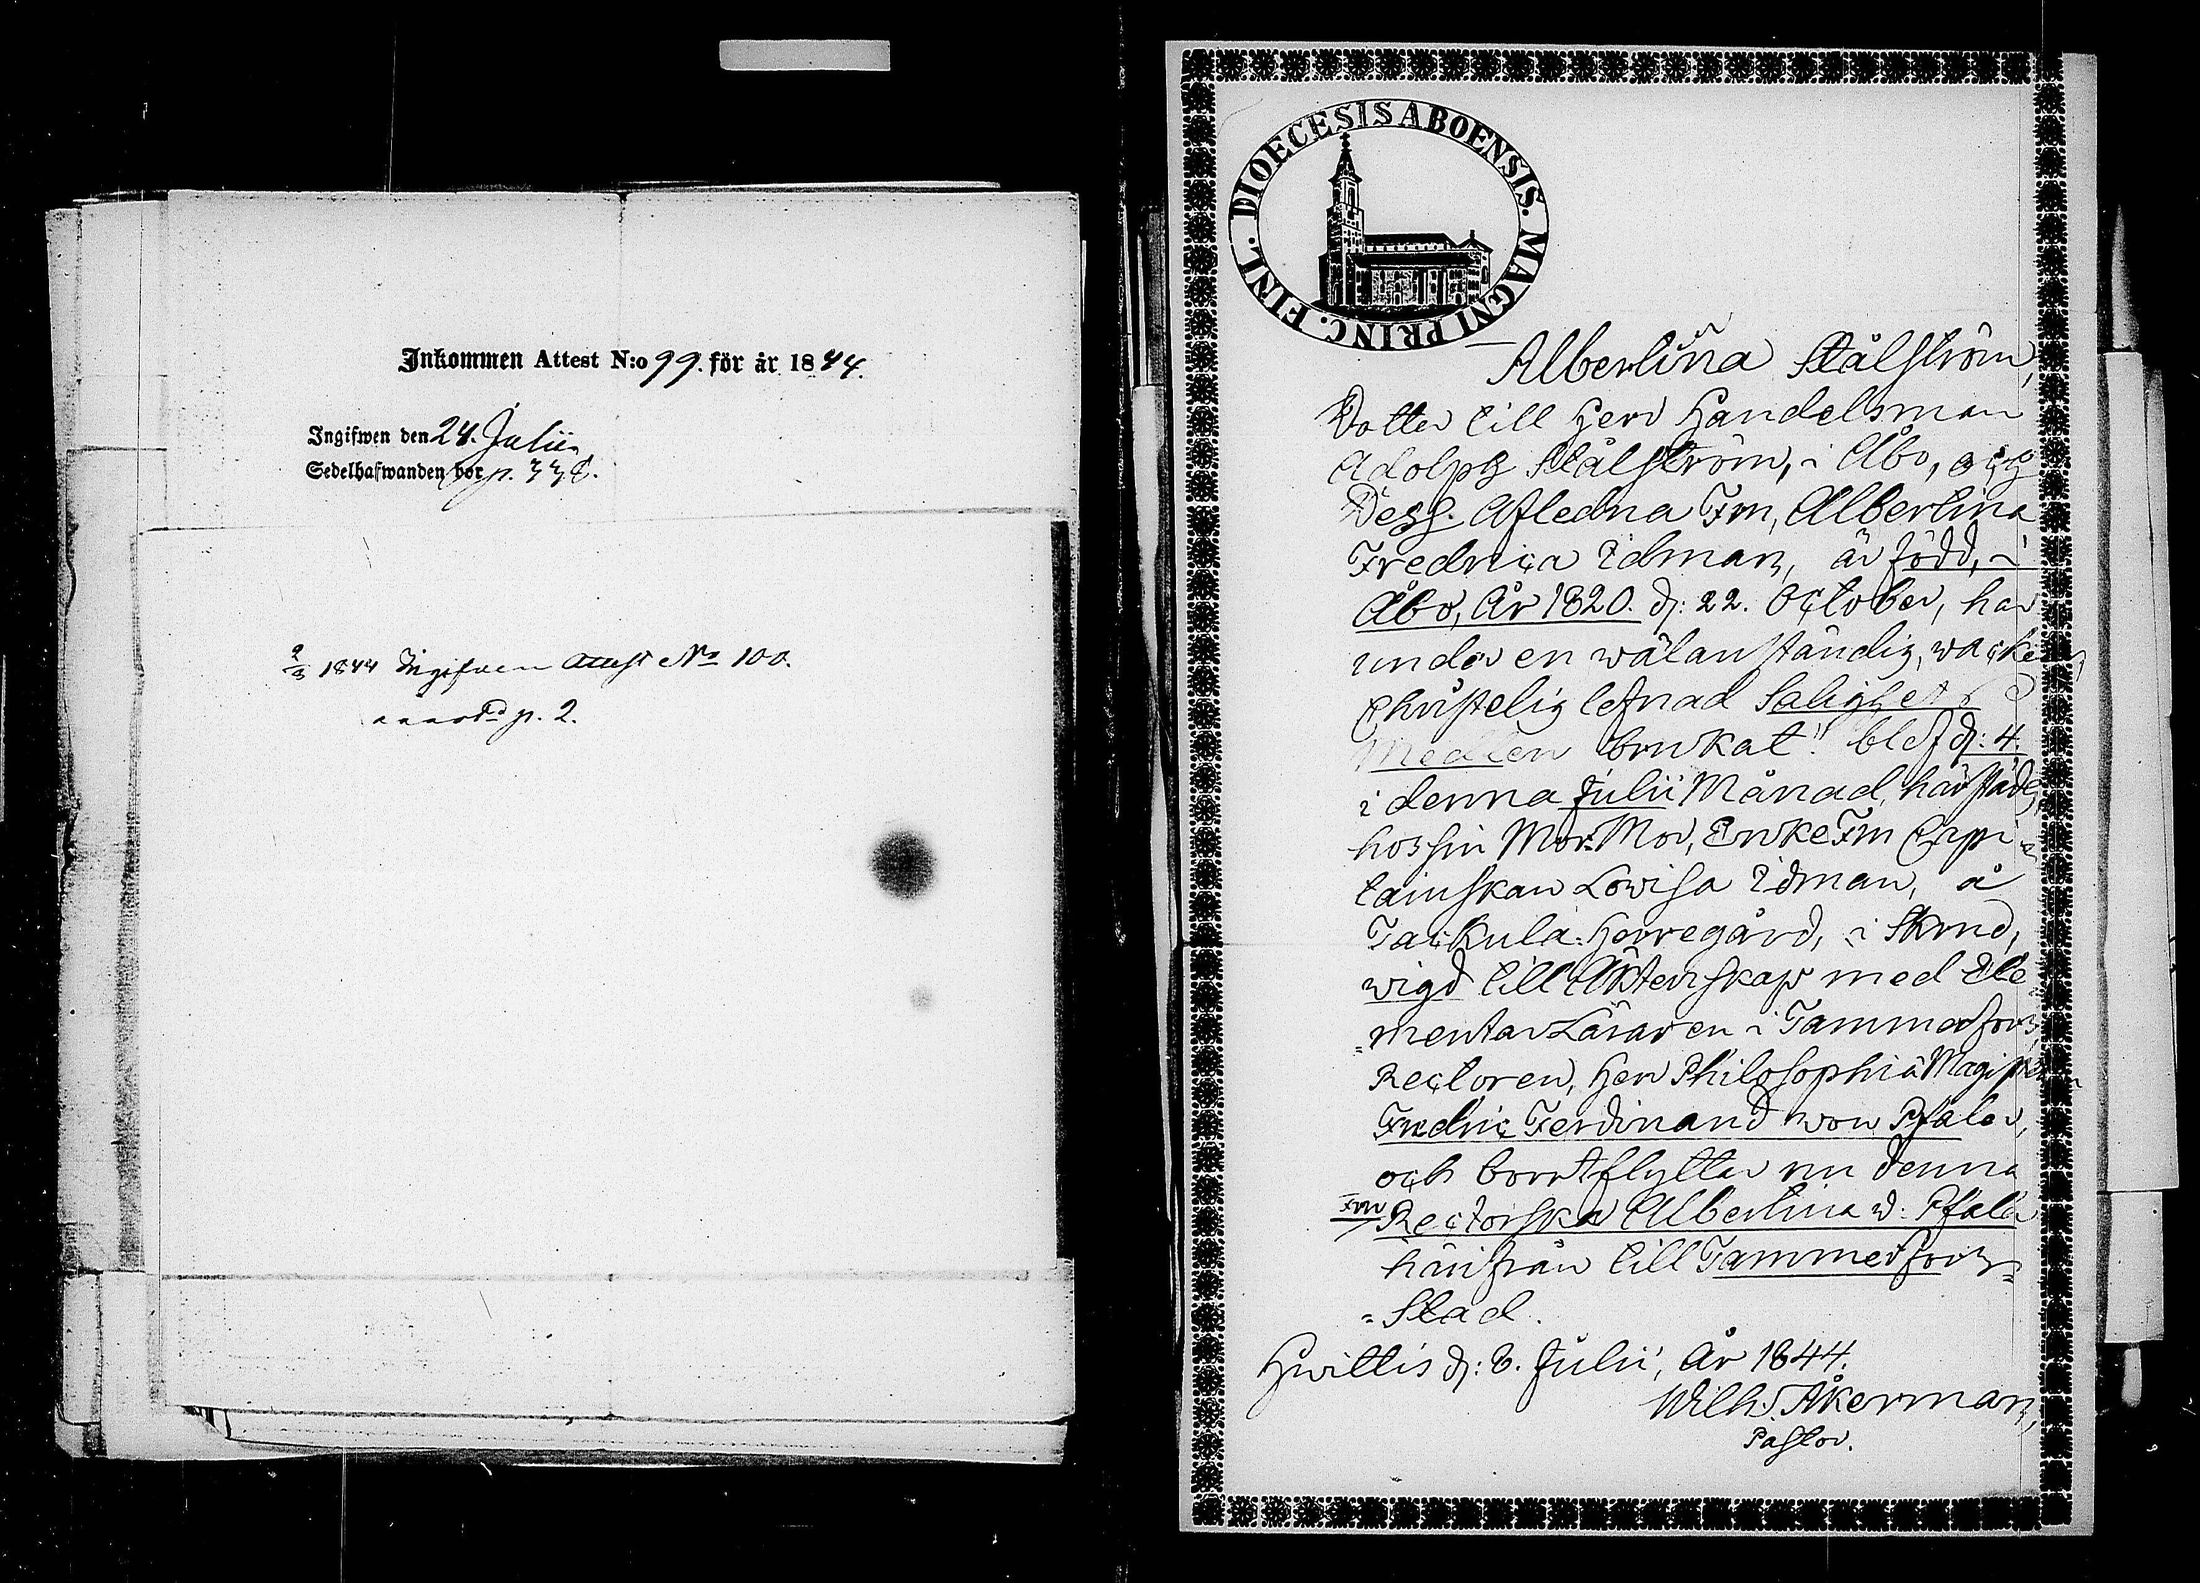 Inkommen Attest N:o 99. för år 1844.
Ingifwen den 24. Julii
Sedelhafwanden bor p. 338.
1844 Ingifwen Attest No 100.
p. 2.
DIOECESIS ABOENSIS. MAGNI PRINC. FINL.
Albertina Stålström,
Dotter till Herr Handelsman
Adolph Stålström, i Åbo, och
Dess. Afledna Fru, Albertina
Fredrica Idman, är född, i
Åbo, År 1820. d: 22. October, har
under en wälanständig, wacker
Christelig lefnad Salighets
Medlen brukat! blef d: 4.
i denna Julii Månad, härstädes,
hos sin Mor=Mor, EnkeFru Capi=
tainskan Lowisa Idman, å
Tackula=Herregård, i Strnd,
wigd till Äktenskap med Ele=
=mentarLäraren i Tammerfors,
Rectoren, Herr Philosophiä Magistern
Fredric Ferdinand von Pfaler,
och bortflyttar nu denna
Fru Rectorskan Albertina v: Pfaler
härifrån till Tammerfors=
=Stad.
Hwittis d: 8. Julii, År 1844.
Wilh. Åkerman,
Pastor.